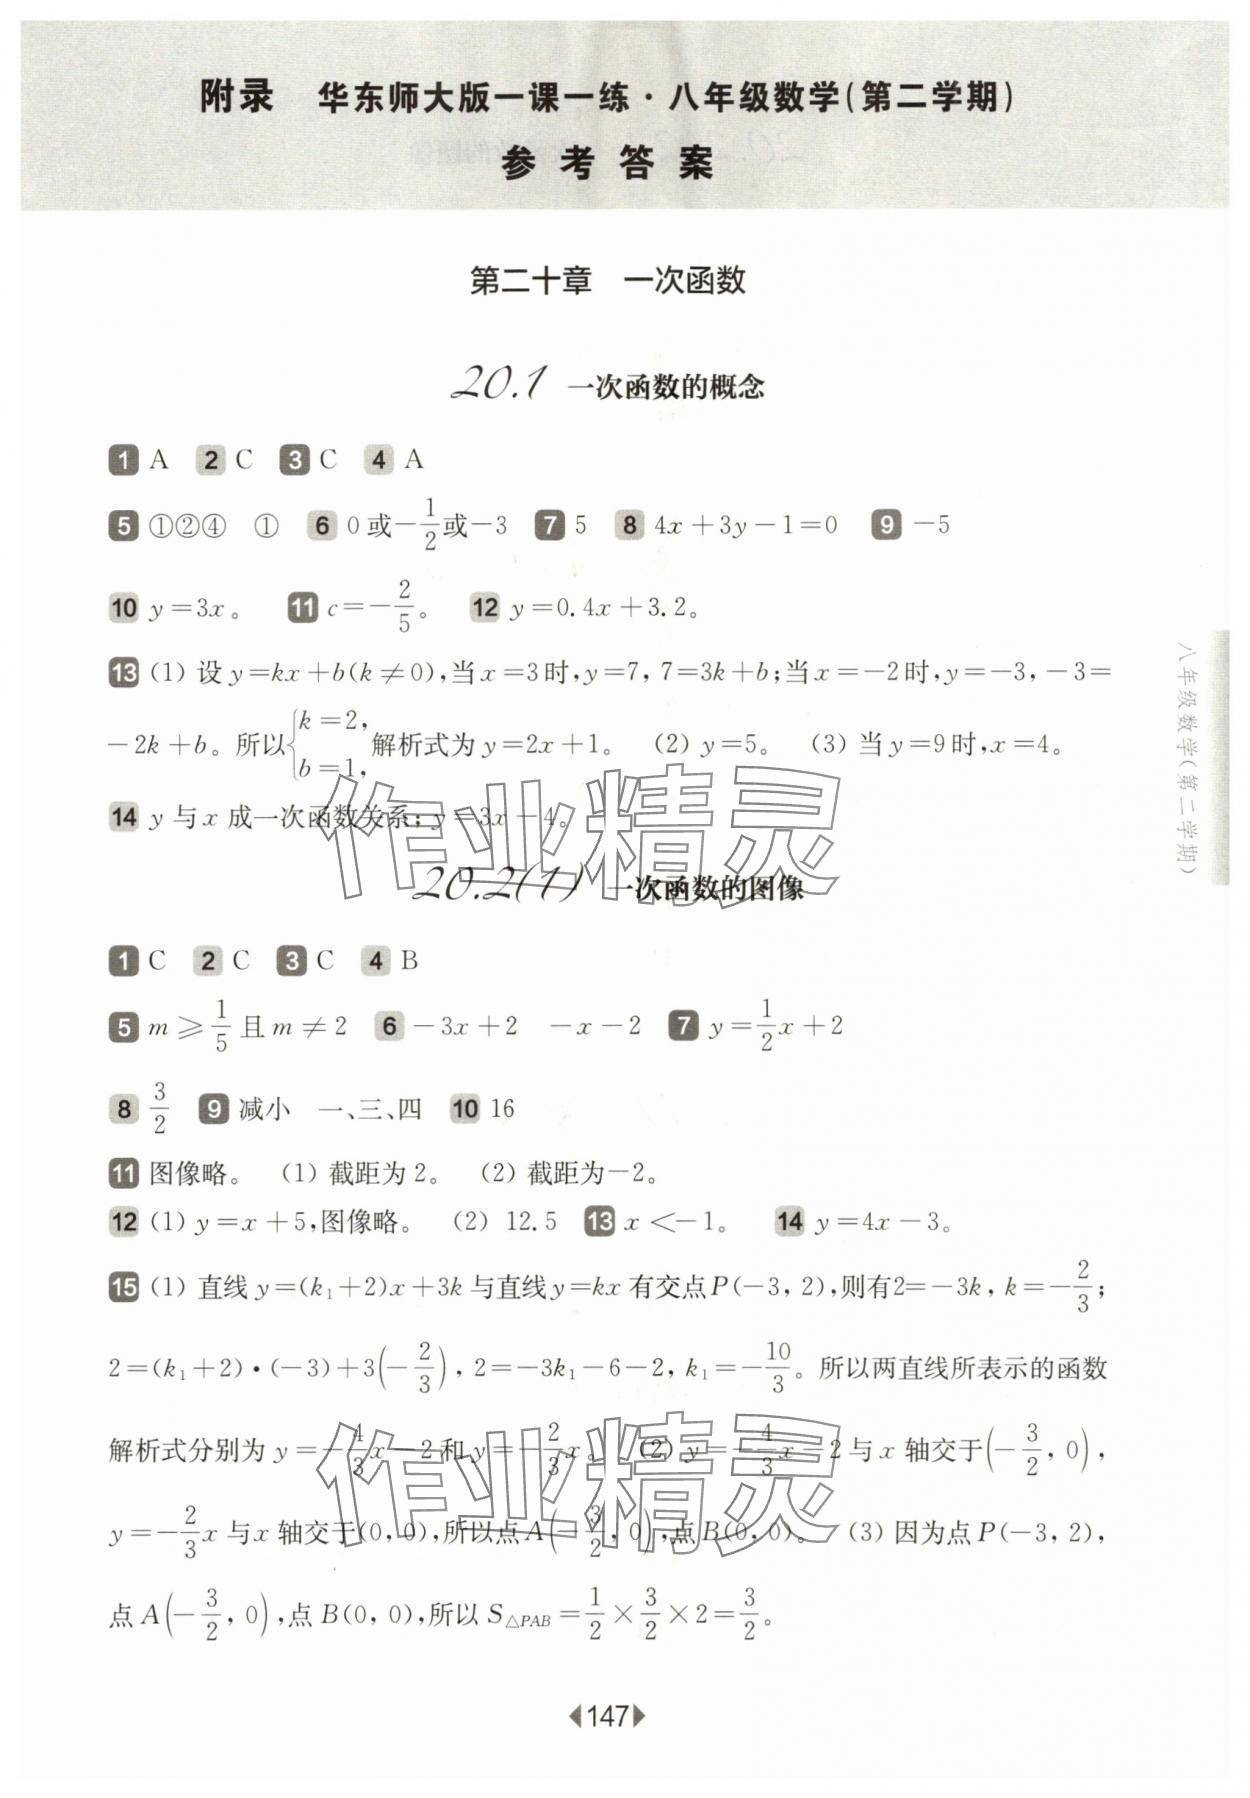 附录 华东师大版一课一练·八年级数学(第二学期)
参考答案
第二十章 一次函数
20.1 一次函数的概念
1 A 2 C 3 C 4 A
5 ①②④ ① 6 0或-1/2或-3 7 5 8 4x+3y-1=0 9 -5
10 y=3x。 11 c=-2/5。 12 y=0.4x+3.2。
13 (1) 设y=kx+b(k≠0),当x=3时,y=7, 7=3k+b;当x=-2时,y=-3, -3=
-2k+b。所以{k=2, b=1, 解析式为y=2x+1。 (2) y=5。 (3) 当y=9时,x=4。
14 y与x成一次函数关系; y=3x-4。
20.2(1) 一次函数的图像
1 C 2 C 3 C 4 B
5 m≥1/5且m≠2 6 -3x+2 -x-2 7 y=1/2x+2
8 3/2 9 减小 一、三、四 10 16
11 图像略。 (1) 截距为2。 (2) 截距为-2。
12 (1) y=x+5,图像略。 (2) 12.5 13 x<-1。 14 y=4x-3。
15 (1) 直线y=(k₁+2)x+3k与直线y=kx有交点P(-3, 2),则有2=-3k, k=-2/3;
2=(k₁+2)·(-3)+3(-2/3), 2=-3k₁-6-2, k₁=-10/3。所以两直线所表示的函数
解析式分别为y=-4/3x-2和y=-2/3x。 (2) y=-4/3x-2与x轴交于(-3/2, 0),
y=-2/3x与x轴交于(0, 0),所以点A(-3/2, 0),点B(0, 0)。 (3) 因为点P(-3, 2),
点A(-3/2, 0),点B(0, 0),所以S△PAB=1/2×3/2×2=3/2。
147
八年级数学(第二学期)
作业精灵
作业精灵